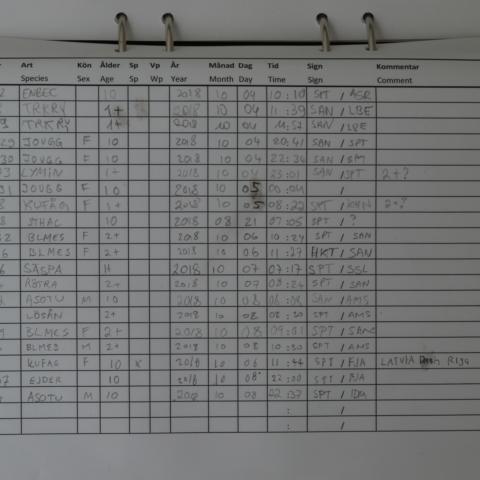 Art Kön Ålder Sp Vp År Månad Dag Tid Sign Kommentar
Species Sex Age Sp Wp Year Month Day Time Sign Comment
ENBEC 10 2018 10 04 10:10 SPT / ASR
TRKRY 1+ 2018 10 04 11:39 SAN / LBE
TRKRY 1+ 2018 10 04 11:52 SAN / LBE
29 JOUGG F 10 2018 10 04 20:41 SAN / SPT
30 JOUGG F 10 2018 10 04 22:36 SAN / SPT
LYMIN 1+ 2018 10 04 23:01 SAN / SPT 2+?
31 JOUGG F 10 2018 10 05 00:04 /
KUFAG F 1+ 2018 10 05 08:22 SPT / 2+?
STHAL 10 2018 08 21 07:05 SPT / ?
BLMES F 2+ 2018 10 06 10:24 SPT / SAN
BLMES F 2+ 2018 10 06 11:27 HKT / SAN
SASPA 2018 10 07 07:17 SPT / SSL
2+ 2018 10 07 08:24 SPT / SAN
ASOTU M 10 2018 10 08 06:08 SAN / AMS
LÖSÅN 2+ 2018 10 08 08:20 SPT / AMS
BLMES F 2+ 2018 10 08 09:01 SPT / SAN
BLMES M 2+ 2018 10 08 10:30 SPT / AMS
KUFAG F 10 K 2018 10 06 11:44 SPT / FJA LATVIA Riga
EJDER 10 2018 10 08 22:00 SPT /
ASOTU M 10 2018 10 08 22:37 SPT /
: /
: /